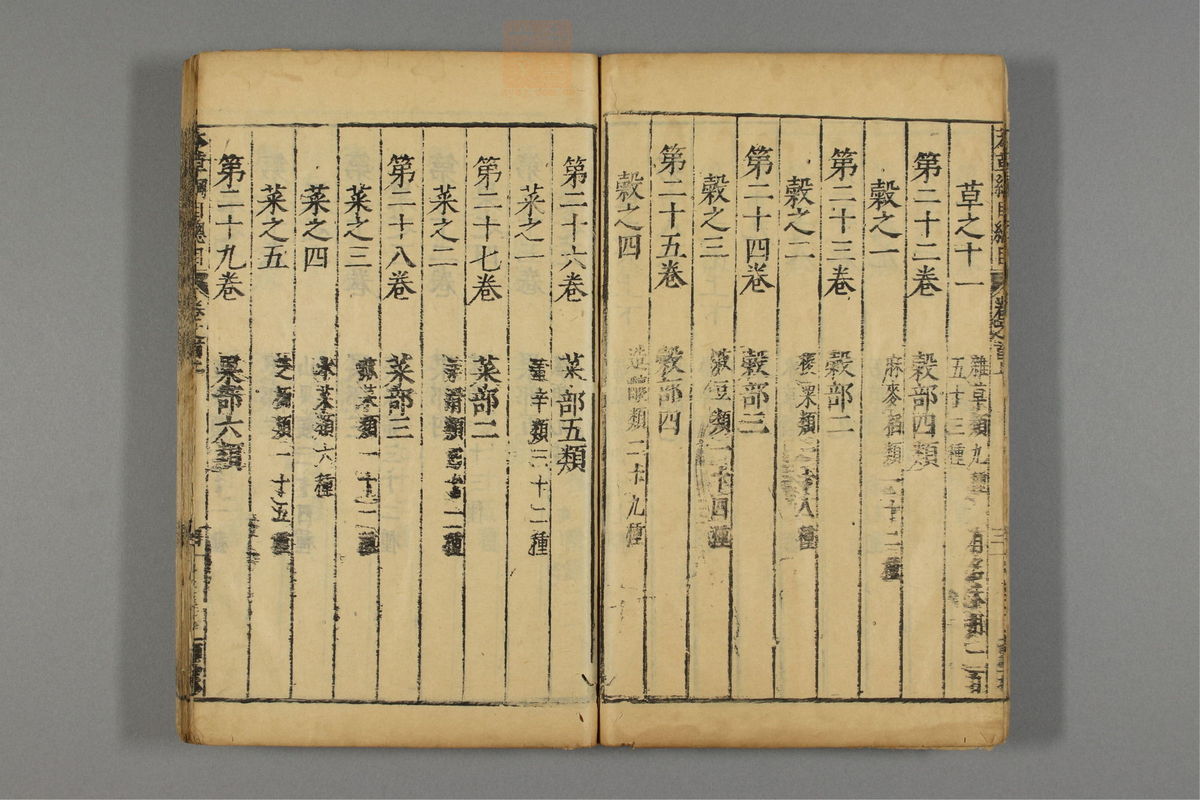 草之十一 雜草類九種 有名未用一百
五十三種
第二十二卷 穀部四類
穀之一 麻麥稻類一十二種
第二十三卷 穀部二
穀之二 稷粟類一十八種
第二十四卷 穀部三
穀之三 菽豆類一十四種
第二十五卷 穀部四
穀之四 造釀類二十九種
第二十六卷 菜部五類
菜之一 葷辛類三十二種
第二十七卷 菜部二
菜之二 柔滑類四十一種
第二十八卷 菜部三
菜之三 蓏菜類一十一種
菜之四 水菜類六種
菜之五 芝栭類一十五種
第二十九卷 果部六類
本草綱目總目